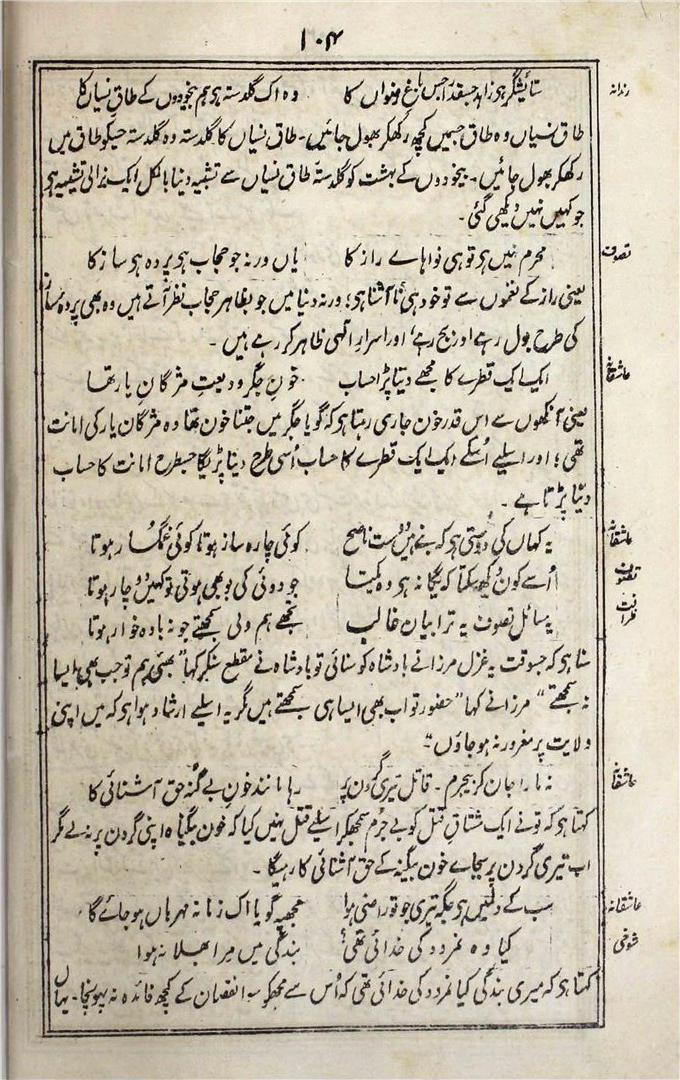 ۱۰۴
رندانہ
ستائیشگر ہو زاہد جسقدر جس باغ رضواں کا وہ اک گلدستہ ہو ہم بیخودوں کے طاقِ نسیاں کا
طاق نسیاں وہ طاق جسمیں کچھ رکھکر بھول جائیں۔ طاق نسیاں کا گلدستہ وہ گلدستہ جسکو طاق میں
رکھکر بھول جائیں۔ بیخودوں کے بہشت کو گلدستۂ طاق نسیاں سے تشبیہ دینا بالکل ایک نرالی تشبیہ ہو
جو کہیں نہیں دیکھی گئی۔
تصوف
محرم نہیں ہو تو ہی نواہاے راز کا یاں ورنہ جو حجاب ہو پردہ ہو ساز کا
یعنی راز کے نغموں سے تو خود ہی ناآشنا ہو؛ ورنہ دنیا میں جو بظاہر حجاب نظر آتے ہیں وہ بھی پردہ ساز
کی طرح بول رہے اور بج رہے' اور اسرارِ الٰہی ظاہر کر رہے ہیں۔
عاشقانہ
ایک ایک قطرے کا مجھے دینا پڑا حساب خونِ جگر ودیعتِ مژگانِ یار تھا
یعنی آنکھوں سے اس قدر خون جاری رہتا ہو کہ گویا جگر میں جتنا خون تھا وہ مژگان یار کی امانت
تھی؛ اور اسلیے اُسکے ایک ایک قطرے کا حساب اُسی طرح دینا پڑیگا جسطرح امانت کا حساب
دینا پڑتا ہے۔
عاشقانہ
یہ کہاں کی دوستی ہو کہ بنے ہیں دوست ناصح کوئی چارہ ساز ہوتا کوئی غمگسار ہوتا
تصوف
اُسے کون دیکھ سکتا کہ یگانہ ہو وہ یکتا جو دوئی کی بو بھی ہوتی تو کہیں دوچار ہوتا
ظرافت
یہ مسائل تصوف یہ ترا بیان غالب تجھے ہم ولی سمجھتے جو نہ بادہ خوار ہوتا
سنا ہو کہ جسوقت یہ غزل مرزا نے بادشاہ کو سنائی تو بادشاہ نے مقطع سنکر کہا" بھئی ہم تو جب بھی ایسا
نہ سمجھتے " مرزا نے کہا " حضور تو اب بھی ایسا ہی سمجھتے ہیں مگر یہ اسلیے ارشاد ہوا ہو کہ میں اپنی
ولایت پر مغرور نہ ہو جاؤں"
عاشقانہ
نہ مارا جان کر بیجرم۔ قاتل تیری گردن پر رہا مانند خونِ بے گنہ حق آشنائی کا
کہتا ہو کہ تونے ایک مشتاق قتل کو بے جرم سمجھکر اسلیے قتل نہیں کیا کہ خون بیگناہ اپنی گردن پر نہ لے مگر
اب تیری گردن پر بجاے خون بیگنہ کے حق آشنائی کا رہیگا۔
عاشقانہ
سب کے دلمیں ہو جگہ تیری جو تو راضی ہوا مجھپہ گویا اک زمانہ مہرباں ہو جائے گا
شوخی
کیا وہ نمرود کی خدائی تھی؟ بندگی میں مرا بھلا نہ ہوا
کہتا ہو کہ میری بندگی کیا نمرود کی خدائی تھی کہ اُس سے مجھکو سوا نقصان کے کچھ فائدہ نہ پہونچا۔ یہاں